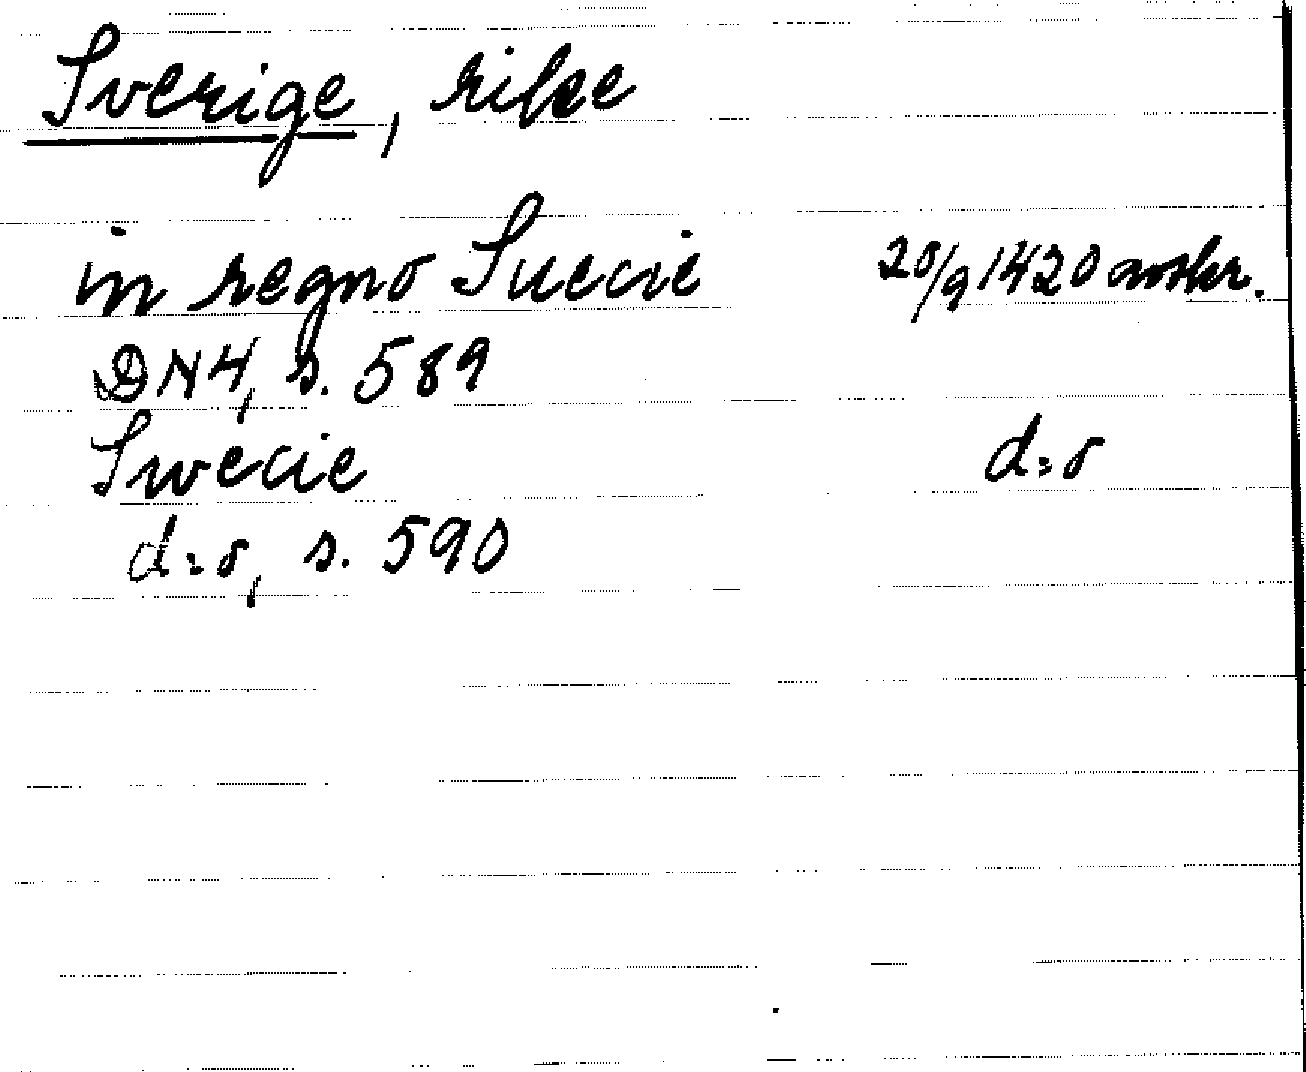 Sverige, rike
in regno Suecie 20/9 1420 avskr.
DN 4, s. 589
Swecie d:o
d:o, s. 590